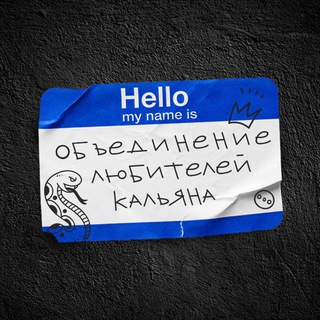 Hello
my name is
ОБЪЕДИНЕНИЕ
ЛЮБИТЕЛЕЙ
КАЛЬЯНА